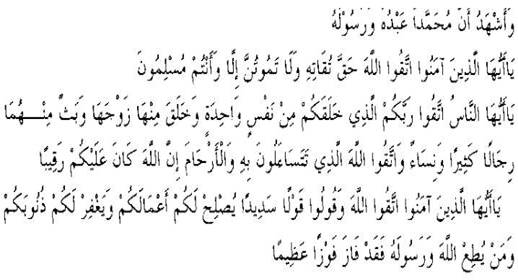 وَأَشْهَدُ أَنَّ مُحَمَّدًا عَبْدُهُ وَرَسُولُهُ
يَاأَيُّهَا الَّذِينَ آمَنُوا اتَّقُوا اللَّهَ حَقَّ تُقَاتِهِ وَلَا تَمُوتُنَّ إِلَّا وَأَنْتُمْ مُسْلِمُونَ
يَاأَيُّهَا النَّاسُ اتَّقُوا رَبَّكُمُ الَّذِي خَلَقَكُمْ مِنْ نَفْسٍ وَاحِدَةٍ وَخَلَقَ مِنْهَا زَوْجَهَا وَبَثَّ مِنْــهُمَا
رِجَالًا كَثِيرًا وَنِسَاءً وَاتَّقُوا اللَّهَ الَّذِي تَتَسَاءَلُونَ بِهِ وَالْأَرْحَامَ إِنَّ اللَّهَ كَانَ عَلَيْكُمْ رَقِيبًا
يَاأَيُّهَا الَّذِينَ آمَنُوا اتَّقُوا اللَّهَ وَقُولُوا قَوْلًا سَدِيدًا يُصْلِحْ لَكُمْ أَعْمَالَكُمْ وَيَغْفِرْ لَكُمْ ذُنُوبَكُمْ
وَمَنْ يُطِعِ اللَّهَ وَرَسُولَهُ فَقَدْ فَازَ فَوْزًا عَظِيمًا